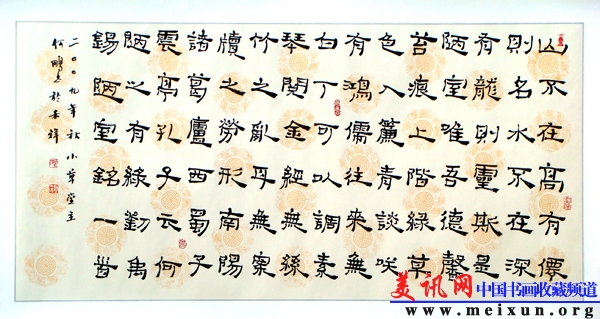 山不在高有僊
則名水不在深
有龍則靈斯是
陋室唯吾德馨
苔痕上階綠草
色入簾青談咲
有鴻儒往來無
白丁可以調素
琴閱金經無絲
竹之亂耳無案
牘之勞形南陽
諸葛廬西蜀子
雲亭孔子云何
陋之有錄劉禹
錫陋室銘一首
二〇〇九年秋小草堂主
何鵬於
美讯网 中国书画收藏频道
www.meixun.org